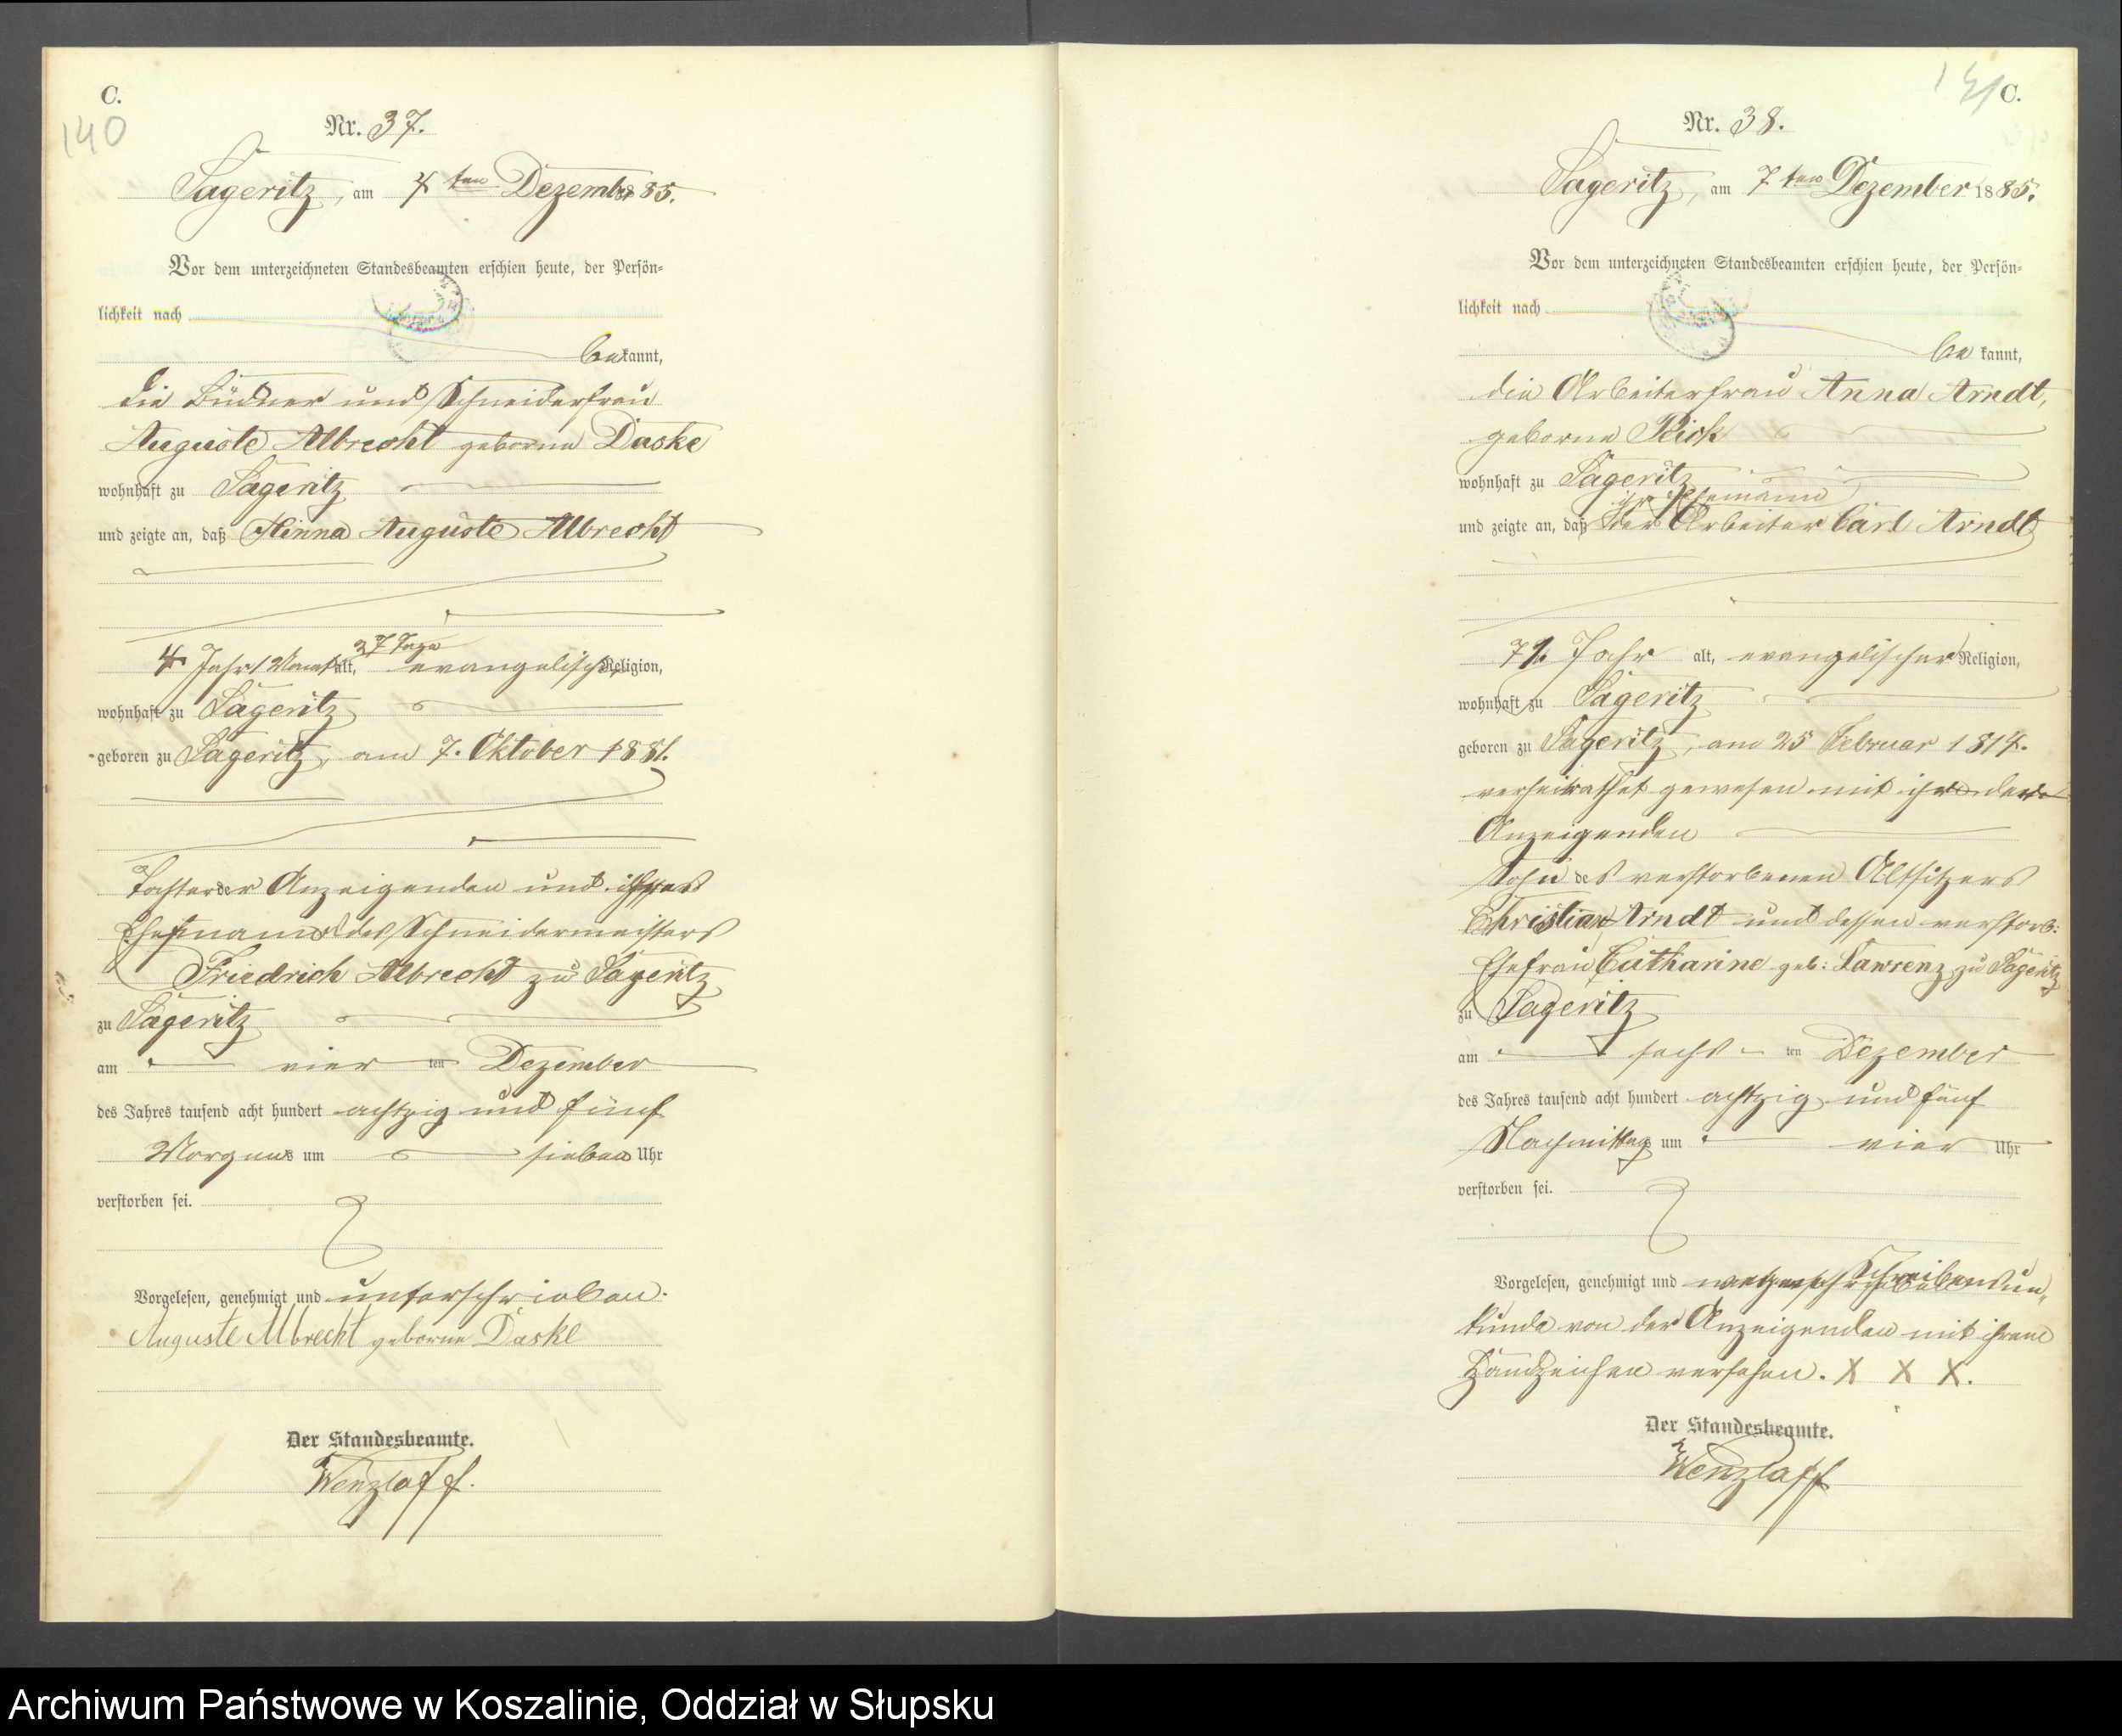 C.
140
Nr. 37.
Sageritz, am 4ten Dezember 1885.
Vor dem unterzeichneten Standesbeamten erschien heute, der Persön-
lichkeit nach
bekannt,
die Büdner und Schneiderfrau
Auguste Albrecht geborne Daske
wohnhaft zu Sageritz
und zeigte an, daß Minna Auguste Albrecht
4 Jahr 1 Monat 27 Tage alt, evangelischer Religion,
wohnhaft zu Sageritz
geboren zu Sageritz, am 7. Oktober 1881.
Tochter der Anzeigenden und ihres
Ehemannes des Schneidermeisters
Friedrich Albrecht zu Sageritz
zu Sageritz
am vier ten Dezember
des Jahres tausend acht hundert achtzig und fünf
Morgens um sieben Uhr
verstorben sei.
Vorgelesen, genehmigt und unterschrieben.
Auguste Albrecht geborne Daske
Der Standesbeamte.
Wenzlaff.
C.
Nr. 38.
Sageritz, am 7ten Dezember 1885.
Vor dem unterzeichneten Standesbeamten erschien heute, der Persön-
lichkeit nach
bekannt,
die Arbeiterfrau Anna Arndt,
geborne Pick
wohnhaft zu Sageritz
ihr Ehemann
und zeigte an, daß der Arbeiter Carl Arndt
71 Jahr alt, evangelischer Religion,
wohnhaft zu Sageritz
geboren zu Sageritz, am 25 Februar 1814.
verheirathet gewesen mit ihr der
Anzeigenden
Sohn des verstorbenen Altsitzers
Christian Arndt und dessen verstorb:
Ehefrau Catharine geb: Lawrenz zu Sageritz
zu Sageritz
am sechs ten Dezember
des Jahres tausend acht hundert achtzig und fünf
Nachmittags um vier Uhr
verstorben sei.
Vorgelesen, genehmigt und wegen Schreibensun-
kunde von der Anzeigenden mit ihrem
Handzeichen versehen. X X X.
Der Standesbeamte.
Wenzlaff
Archiwum Państwowe w Koszalinie, Oddział w Słupsku